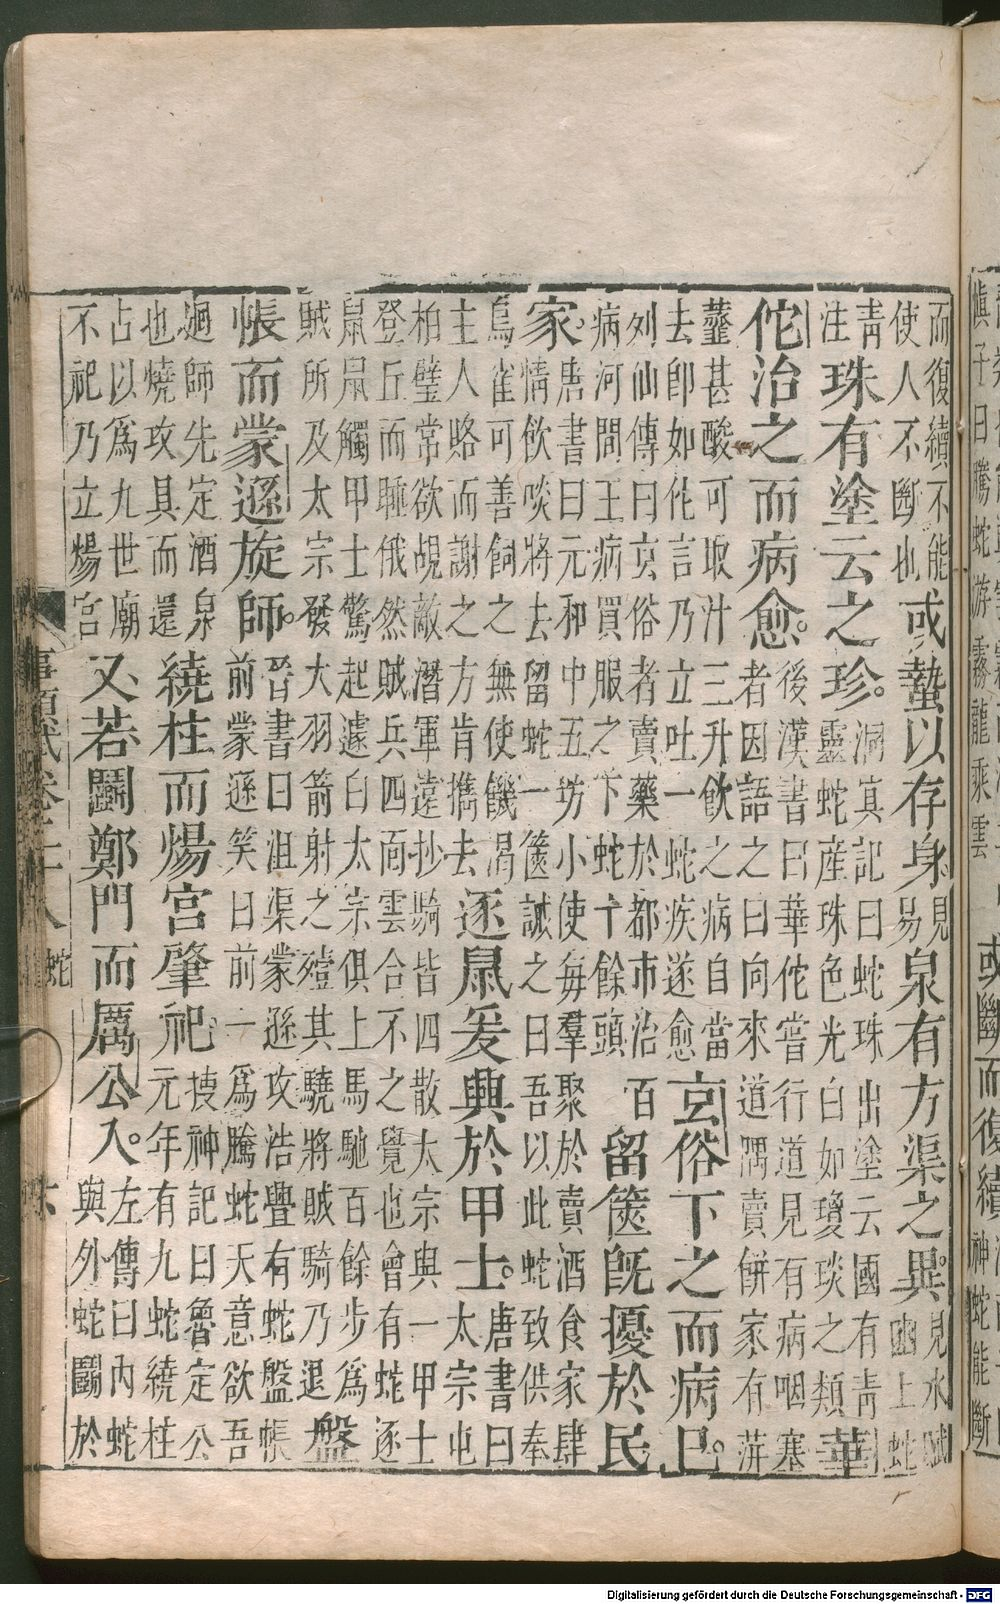 愼子曰騰蛇游霧龍乘雲
或斷而復續
神蛇能斷
而復續不能
使人不斷也
或蟄以存身
見
易
泉有方渠之異
見水賦
幽上蛇
青
注
珠有塗云之珍。
洞冥記曰蛇珠出塗云國有青
靈蛇産珠色光白如瓊琰之類
華
佗治之而病愈。
後漢書曰華佗嘗行道見有病咽塞
者因語之曰向來道隅賣餅家有蓱
虀甚酸可取汁三升飲之病自當
去卽如佗言乃立吐一蛇疾遂愈
玄俗下之而病已。
列仙傳曰玄俗者賣藥於都市治百
病河間王病買服之下蛇十餘頭
留篋旣擾於民
家。
唐書曰元和中五坊小使每羣聚於賣酒食家肆
情飲啖將去留蛇一篋誡之曰吾以此蛇致供奉
烏雀可善飼之無使饑渴
主人賂而謝之方肯擕去
逐鼠爰興於甲士。
唐書曰
太宗屯
柏璧常欲覘敵潛軍遠抄騎皆四散太宗與一甲士
登丘而睡俄然賊兵四面雲合不之覺也會有蛇逐
鼠鼠觸甲士驚起遽白太宗俱上馬馳百餘步爲
賊所及太宗發大羽箭射之殪其驍將賊騎乃退
盤
帳而蒙遜旋師。
晉書曰沮渠蒙遜攻浩亹有蛇盤帳
前蒙遜笑曰前一爲騰蛇天意欲吾
廻師先定酒泉
也燒攻具而還
繞柱而煬宮肇祀。
搜神記曰魯定公
元年有九蛇繞柱
占以爲九世廟
不祀乃立煬宮
又若鬭鄭門而厲公入。
左傳曰內蛇
與外蛇鬭於
事類賦卷二十八 蛇
六
Digitalisierung gefördert durch die Deutsche Forschungsgemeinschaft - DFG